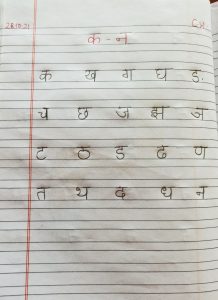 28.10.21 C.W
क - न
क ख ग घ ङ
च छ ज झ ञ
ट ठ ड ढ ण
त थ द ध न